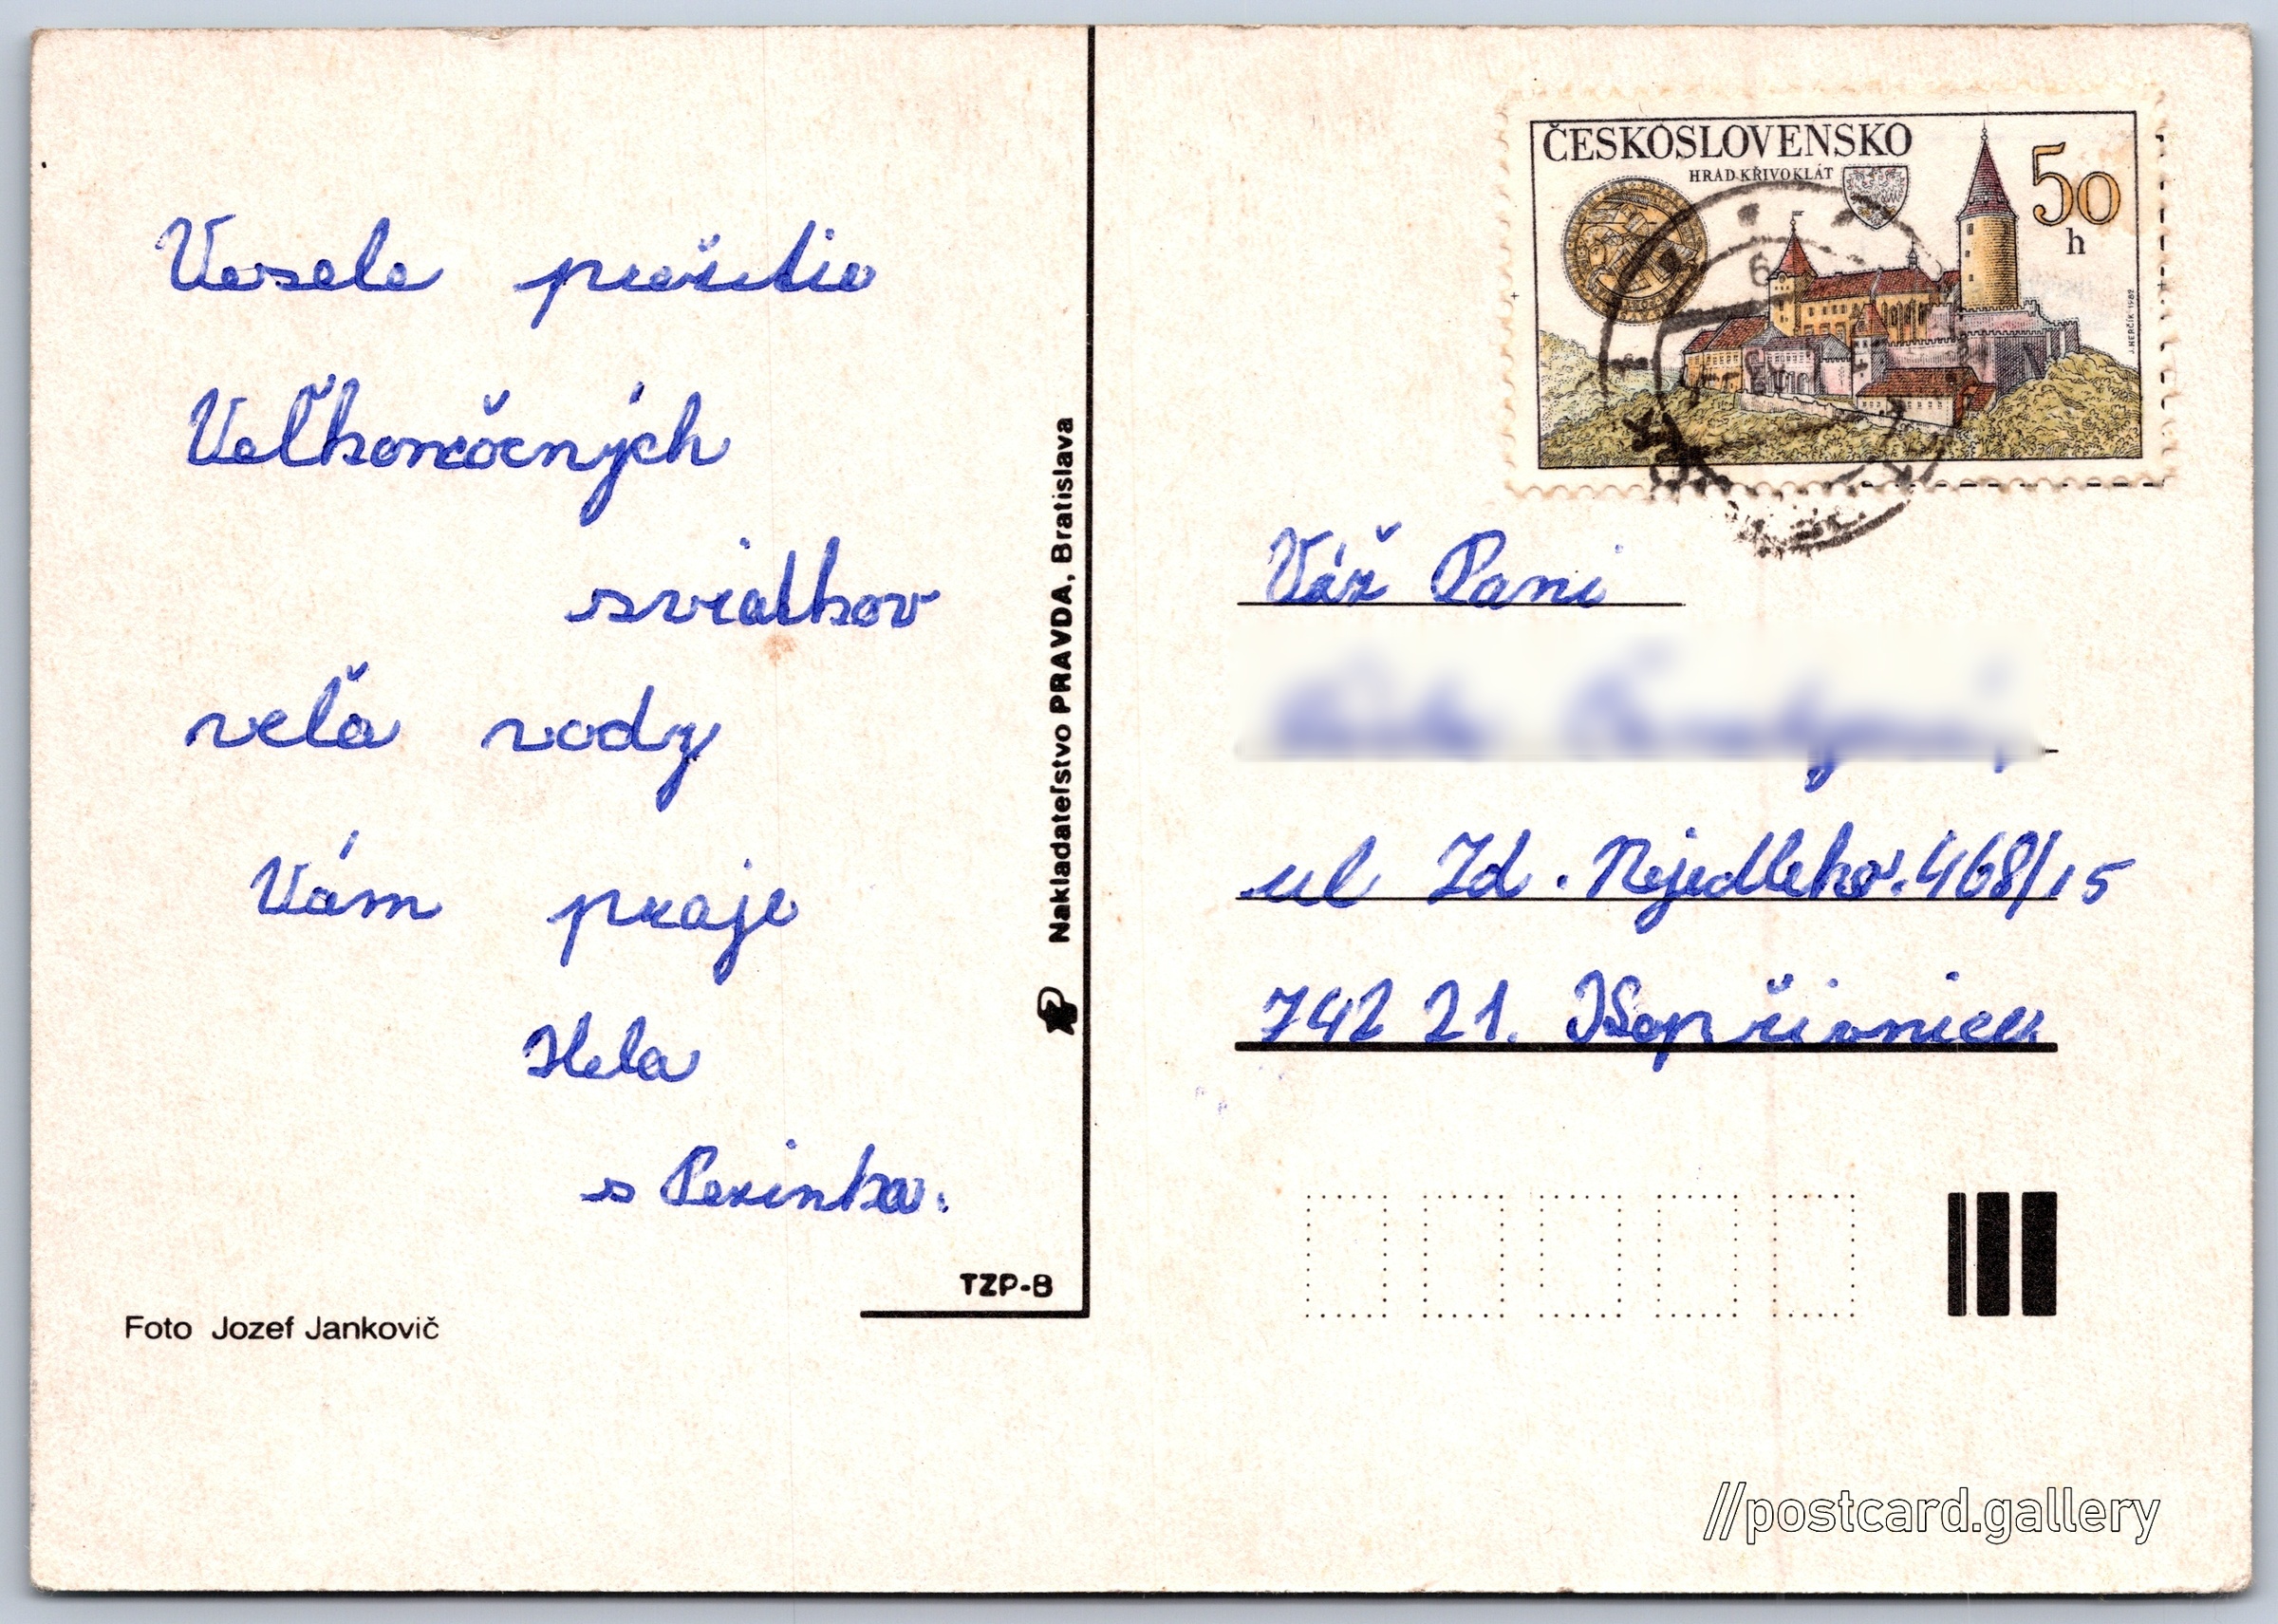 Vesele prežitie
Veľkonočných
sviatkov
veľa vody
Vám praje
Hela
s Pezinka.
TZP-B
Foto Jozef Jankovič
Nakladateľstvo PRAVDA, Bratislava
ČESKOSLOVENSKO
HRAD KŘIVOKLÁT
50
h
J. HERČÍK 1982
Váž Pani
ul Zd. Nejedleho. 468/15
742 21. Kopřivnica
//postcard.gallery